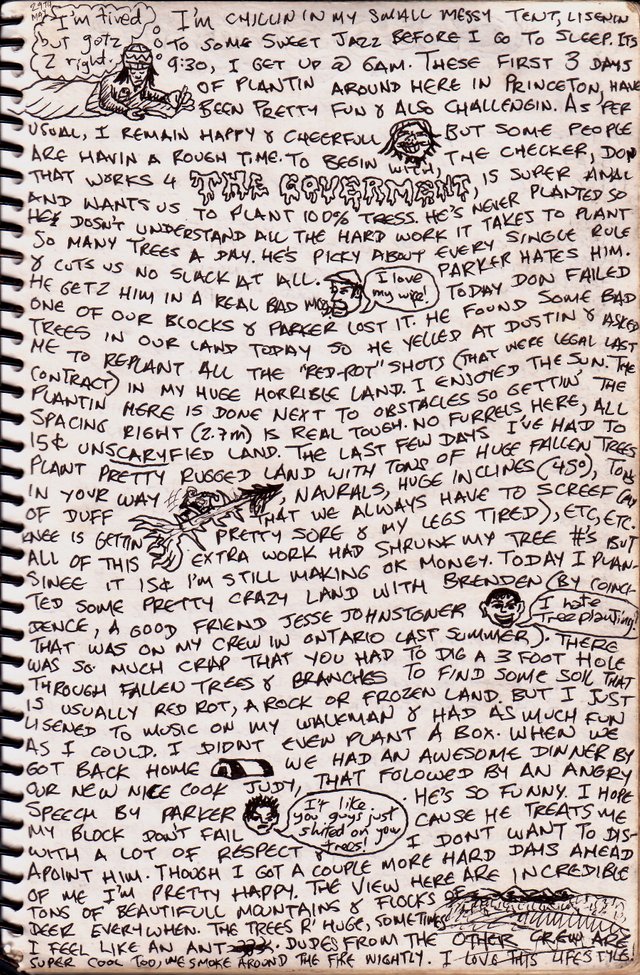 29TH MAY
I'm tired
but gotz
2 right.
I'M CHILLIN IN MY SMALL MESSY TENT, LISENIN
TO SOME SWEET JAZZ BEFORE I GO TO SLEEP. ITS
9:30, I GET UP @ 6AM. THESE FIRST 3 DAYS
OF PLANTIN AROUND HERE IN PRINCETON, HAVE
BEEN PRETTY FUN & ALSO CHALLENGIN. AS PER
USUAL, I REMAIN HAPPY & CHEERFULL BUT SOME PEOPLE
ARE HAVIN A ROUGH TIME. TO BEGIN WITH, THE CHECKER, DON
THAT WORKS 4 THE GOVERMENT, IS SUPER ANAL
AND WANTS US TO PLANT 100% TRESS. HE'S NEVER PLANTED SO
HE DOSN'T UNDERSTAND ALL THE HARD WORK IT TAKES TO PLANT
SO MANY TREES A DAY. HE'S PICKY ABOUT EVERY SINGLE RULE
& CUTS US NO SLACK AT ALL. PARKER HATES HIM.
I love
my wife!
HE GETZ HIM IN A REAL BAD MOOD TODAY DON FAILED
ONE OF OUR BLOCKS & PARKER LOST IT. HE FOUND SOME BAD
TREES IN OUR LAND TODAY SO HE YELLED AT DUSTIN & ASKED
ME TO REPLANT ALL THE "RED-ROT" SHOTS (THAT WERE LEGAL LAST
CONTRACT) IN MY HUGE HORRIBLE LAND. I ENJOYED THE SUN. THE
PLANTIN HERE IS DONE NEXT TO OBSTACLES SO GETTIN' THE
SPACING RIGHT (2.7M) IS REAL TOUGH. NO FURRELS HERE, ALL
15¢ UNSCARYFIED LAND. THE LAST FEW DAYS I'VE HAD TO
PLANT PRETTY RUGGED LAND WITH TONS OF HUGE FALLEN TREES
IN YOUR WAY, NAURALS, HUGE INCLINES (45°), TONS
OF DUFF THAT WE ALWAYS HAVE TO SCREEF
KNEE IS GETTIN PRETTY SORE & MY LEGS TIRED), ETC, ETC.
ALL OF THIS EXTRA WORK HAD SHRUNK MY TREE #'S BUT
SINEE IT 15¢ I'M STILL MAKING OK MONEY. TODAY I PLAN-
TED SOME PRETTY CRAZY LAND WITH BRENDEN (BY COINCI-
DENCE, A GOOD FRIEND JESSE JOHNSTONER
I hate
Treeplanting!
THAT WAS ON MY CREW IN ONTARIO LAST SUMMER). THERE
WAS SO MUCH CRAP THAT YOU HAD TO DIG A 3 FOOT HOLE
THROUGH FALLEN TREES & BRANCHES TO FIND SOME SOIL THAT
IS USUALLY RED ROT, A ROCK OR FROZEN LAND. BUT I JUST
LISENED TO MUSIC ON MY WALKMAN & HAD AS MUCH FUN
AS I COULD. I DIDNT EVEN PLANT A BOX. WHEN WE
GOT BACK HOME WE HAD AN AWESOME DINNER BY
OUR NEW NICE COOK JUDY, THAT FOLOWED BY AN ANGRY
SPEECH BY PARKER HE'S SO FUNNY. I HOPE
It like
you guys just
shitted on your
trees!
MY BLOCK DON'T FAIL CAUSE HE TREATS ME
WITH A LOT OF RESPECT & I DONT WANT TO DIS-
APOINT HIM. THOUGH I GOT A COUPLE MORE HARD DAYS AHEAD
OF ME I'M PRETTY HAPPY. THE VIEW HERE ARE INCREDIBLE
TONS OF BEAUTIFULL MOUNTAINS & FLOCKS OF
DEER EVERYWHEN. THE TREES R' HUGE, SOMETIMES
I FEEL LIKE AN ANT. DUDES FROM THE OTHER CREW ARE
SUPER COOL TOO, WE SMOKE AROUND THE FIRE NIGHTLY. I LOVE THIS LIFESTYLE